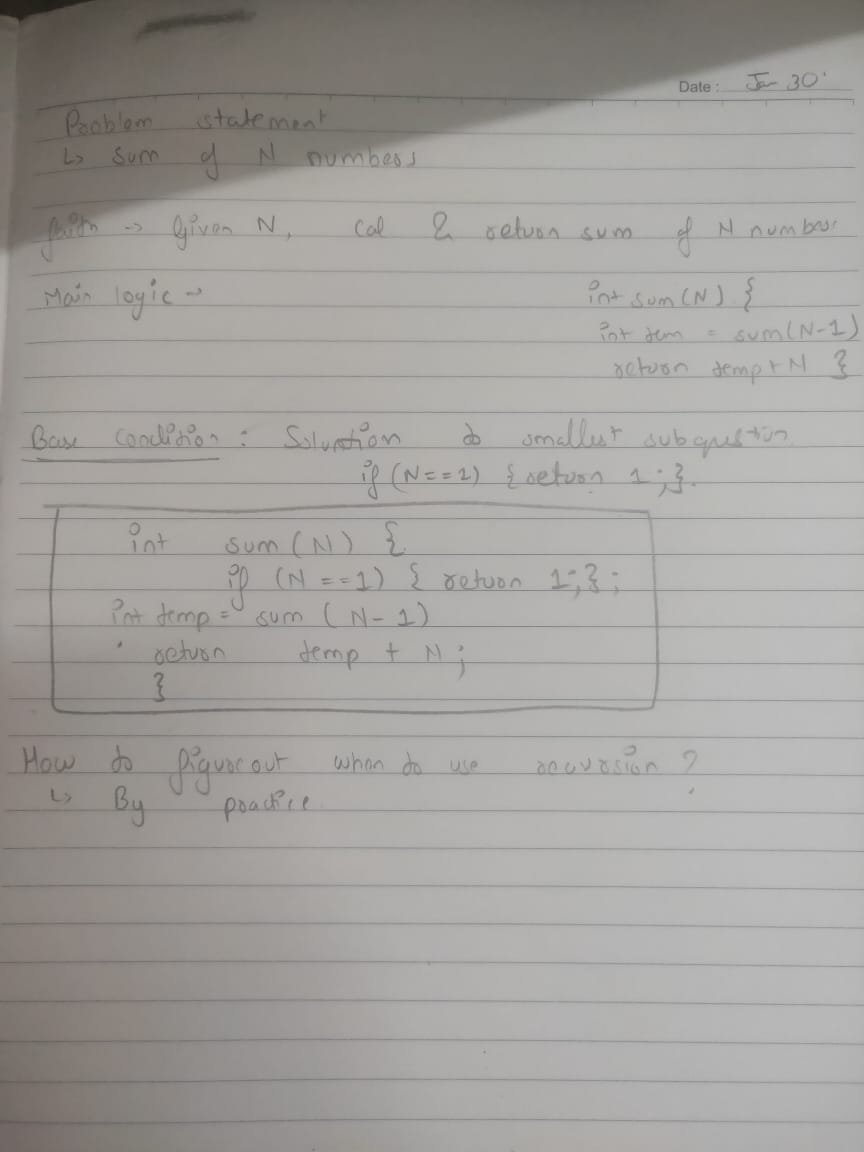 Date: Jan 30'
Problem statement
↳ sum of N numbers
faith → Given N, cal & return sum of N number
Main logic →
int sum(N) {
int tem = sum(N-1)
return temp + N }
Base condition : Soluntion to smallest subquestion
if (N==1) { return 1;}.
int sum (N) {
if (N ==1) { return 1;};
int temp = sum (N-1)
return temp + N;
}
How to figure out when to use recursion ?
↳ By practice.